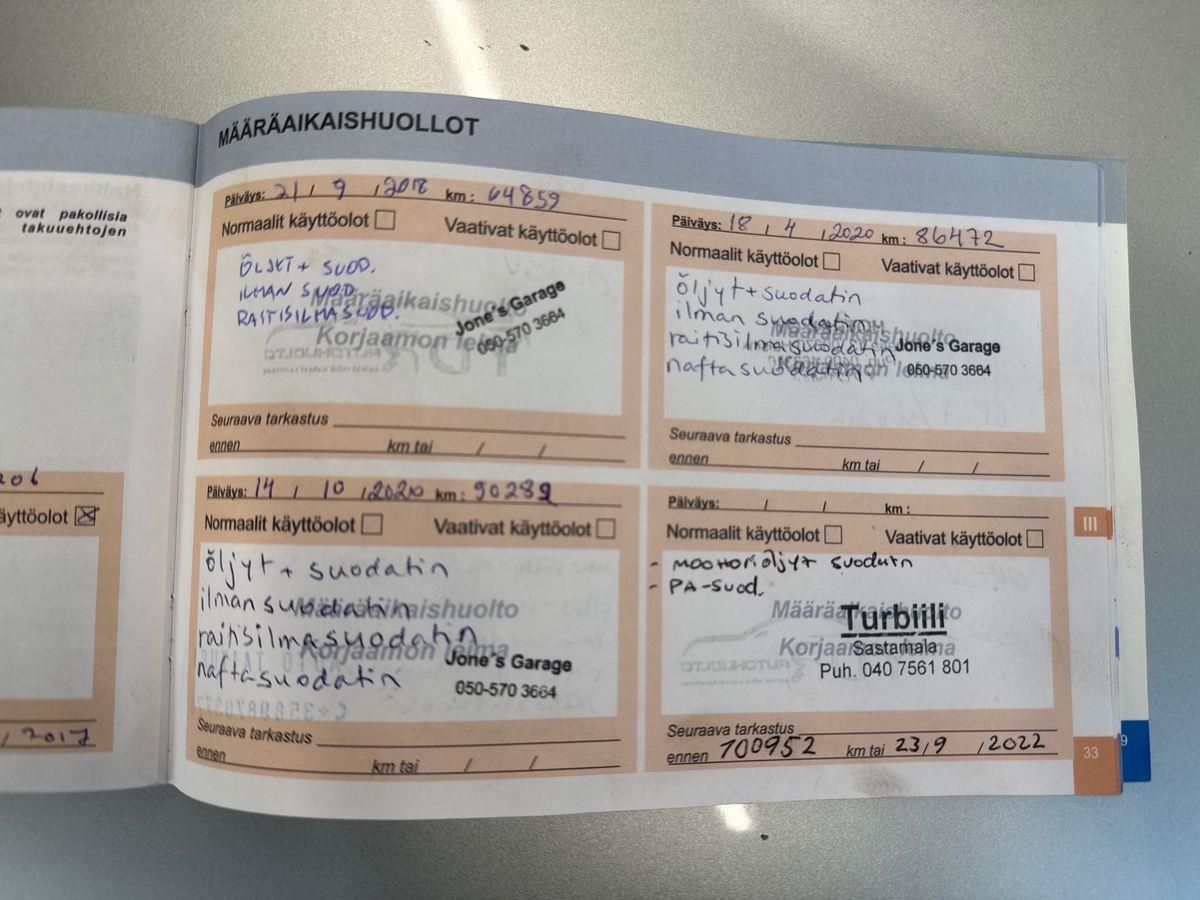 ovat pakollisia
takuuehtojen
äyttöolot
, 2017
MÄÄRÄAIKAISHUOLLOT
Päiväys: 21 / 9 , 2018 km : 64859
Normaalit käyttöolot Vaativat käyttöolot
ÖLJYT + SUOD.
ILMAN SUOD.
RAITISILMASUOD.
Määräaikaishuolto
Korjaamon leima
Jone's Garage
050-570 3664
Seuraava tarkastus
ennen km tai / /
Päiväys: 18 , 4 , 2020 km : 86472
Normaalit käyttöolot Vaativat käyttöolot
öljyt + suodatin
ilman suodatin
raitisilmasuodatin
naftasuodatin
Määräaikaishuolto
Korjaamon leima
Jone's Garage
050-570 3664
Seuraava tarkastus
ennen km tai / /
Päiväys: 14 , 10 , 2020 km : 90289
Normaalit käyttöolot Vaativat käyttöolot
öljyt + suodatin
ilman suodatin
raitisilmasuodatin
naftasuodatin
Määräaikaishuolto
Korjaamon leima
Jone's Garage
050-570 3664
Seuraava tarkastus
ennen km tai / /
Päiväys: / / km :
Normaalit käyttöolot Vaativat käyttöolot
- MOOTTORIÖLJYT SUODATIN
- PA-SUOD.
Määräaikaishuolto
Korjaamon leima
Turbiili
Sastamala
Puh. 040 7561 801
Seuraava tarkastus
ennen 100952 km tai 23 / 9 , 2022
III
33
9